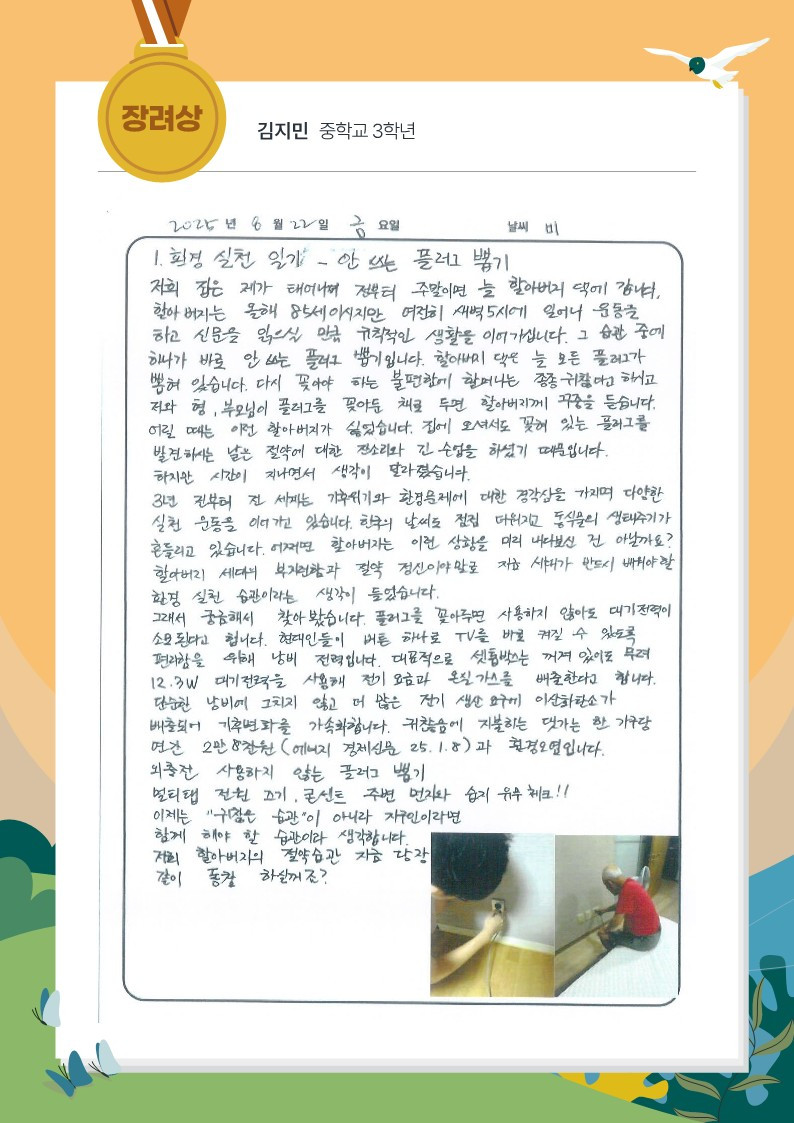 장려상
김지민 중학교 3학년
2025 년 8 월 22 일 금 요일 날씨 비
1. 환경 실천 일기 - 안 쓰는 플러그 뽑기
저희 집은 제가 태어나기 전부터 주말이면 늘 할아버지 댁에 갑니다.
할아버지는 올해 85세이시지만 여전히 새벽5시에 일어나 운동을
하고 신문을 읽으실 만큼 규칙적인 생활을 이어가십니다. 그 습관 중에
하나가 바로 안 쓰는 플러그 뽑기입니다. 할아버지 댁은 늘 모든 플러그가
뽑혀 있습니다. 다시 꽂아야 하는 불편함에 할머니는 종종 귀찮다고 하시고
저와 형, 부모님이 플러그를 꽂아둔 채로 두면 할아버지께 꾸중을 듣습니다.
어릴 때는 이런 할아버지가 싫었습니다. 집에 오셔서도 꽂혀 있는 플러그를
발견하시는 날은 절약에 대한 잔소리와 긴 수업을 하셨기 때문입니다.
하지만 시간이 지나면서 생각이 달라졌습니다.
3년 전부터 전 세계는 기후위기와 환경문제에 대한 경각심을 가지며 다양한
실천 운동을 이어가고 있습니다. 한국의 날씨도 점점 더워지고 동식물의 생태주기가
흔들리고 있습니다. 어쩌면 할아버지는 이런 상황을 미리 내다보신 건 아닐까요?
할아버지 세대의 부지런함과 절약 정신이야말로 지금 세대가 반드시 배워야 할
환경 실천 습관이라는 생각이 들었습니다.
그래서 궁금해서 찾아봤습니다. 플러그를 꽂아두면 사용하지 않아도 대기전력이
소모된다고 합니다. 현대인들이 버튼 하나로 TV를 바로 켜질 수 있도록
편리함을 위해 낭비 전력입니다. 대표적으로 셋톱박스는 꺼져 있어도 무려
12.3W 대기전력을 사용해 전기 요금과 온실가스를 배출한다고 합니다.
단순한 낭비에 그치지 않고 더 많은 전기 생산 요구에 이산화탄소가
배출되어 기후변화를 가속화합니다. 귀찮음에 지불하는 댓가는 한 가구당
연간 2만 8천원 (에너지 경제신문 25.1.8)과 환경오염입니다.
외출전 사용하지 않는 플러그 뽑기
멀티탭 전원 끄기, 콘센트 주변 먼지와 습지 유무 체크!!
이제는 "귀찮은 습관"이 아니라 지구인이라면
함께 해야 할 습관이라 생각합니다.
저희 할아버지의 절약습관 지금 당장
같이 동참 하실꺼죠?